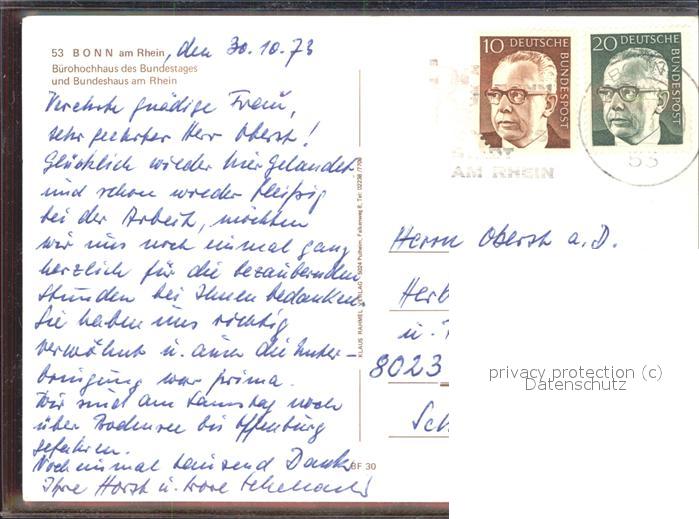 53 BONN am Rhein, den 30.10.73
Bürohochhaus des Bundestages
und Bundeshaus am Rhein
Verehrte gnädige Frau,
sehr geehrter Herr Oberst!
Glücklich wieder hier gelandet
und schon wieder fleißig
bei der Arbeit, möchten
wir uns noch einmal ganz
herzlich für die bezaubernden
Stunden bei Ihnen bedanken.
Sie haben uns richtig
verwöhnt u. auch die Unter-
bringung war prima.
Wir sind am Samstag noch
über Bodensee bis Offenburg
gefahren.
Noch einmal tausend Dank
Ihre Horst u.
KLAUS RAHMEL VERLAG 5024 Pulheim, Falkenweg 8, Tel: 02238/7700
BF 30
10 DEUTSCHE BUNDESPOST
20 DEUTSCHE BUNDESPOST
STADT
AM RHEIN
53
Herrn Oberst a.D.
Herb
u.
8023
Sch
privacy protection (c)
Datenschutz